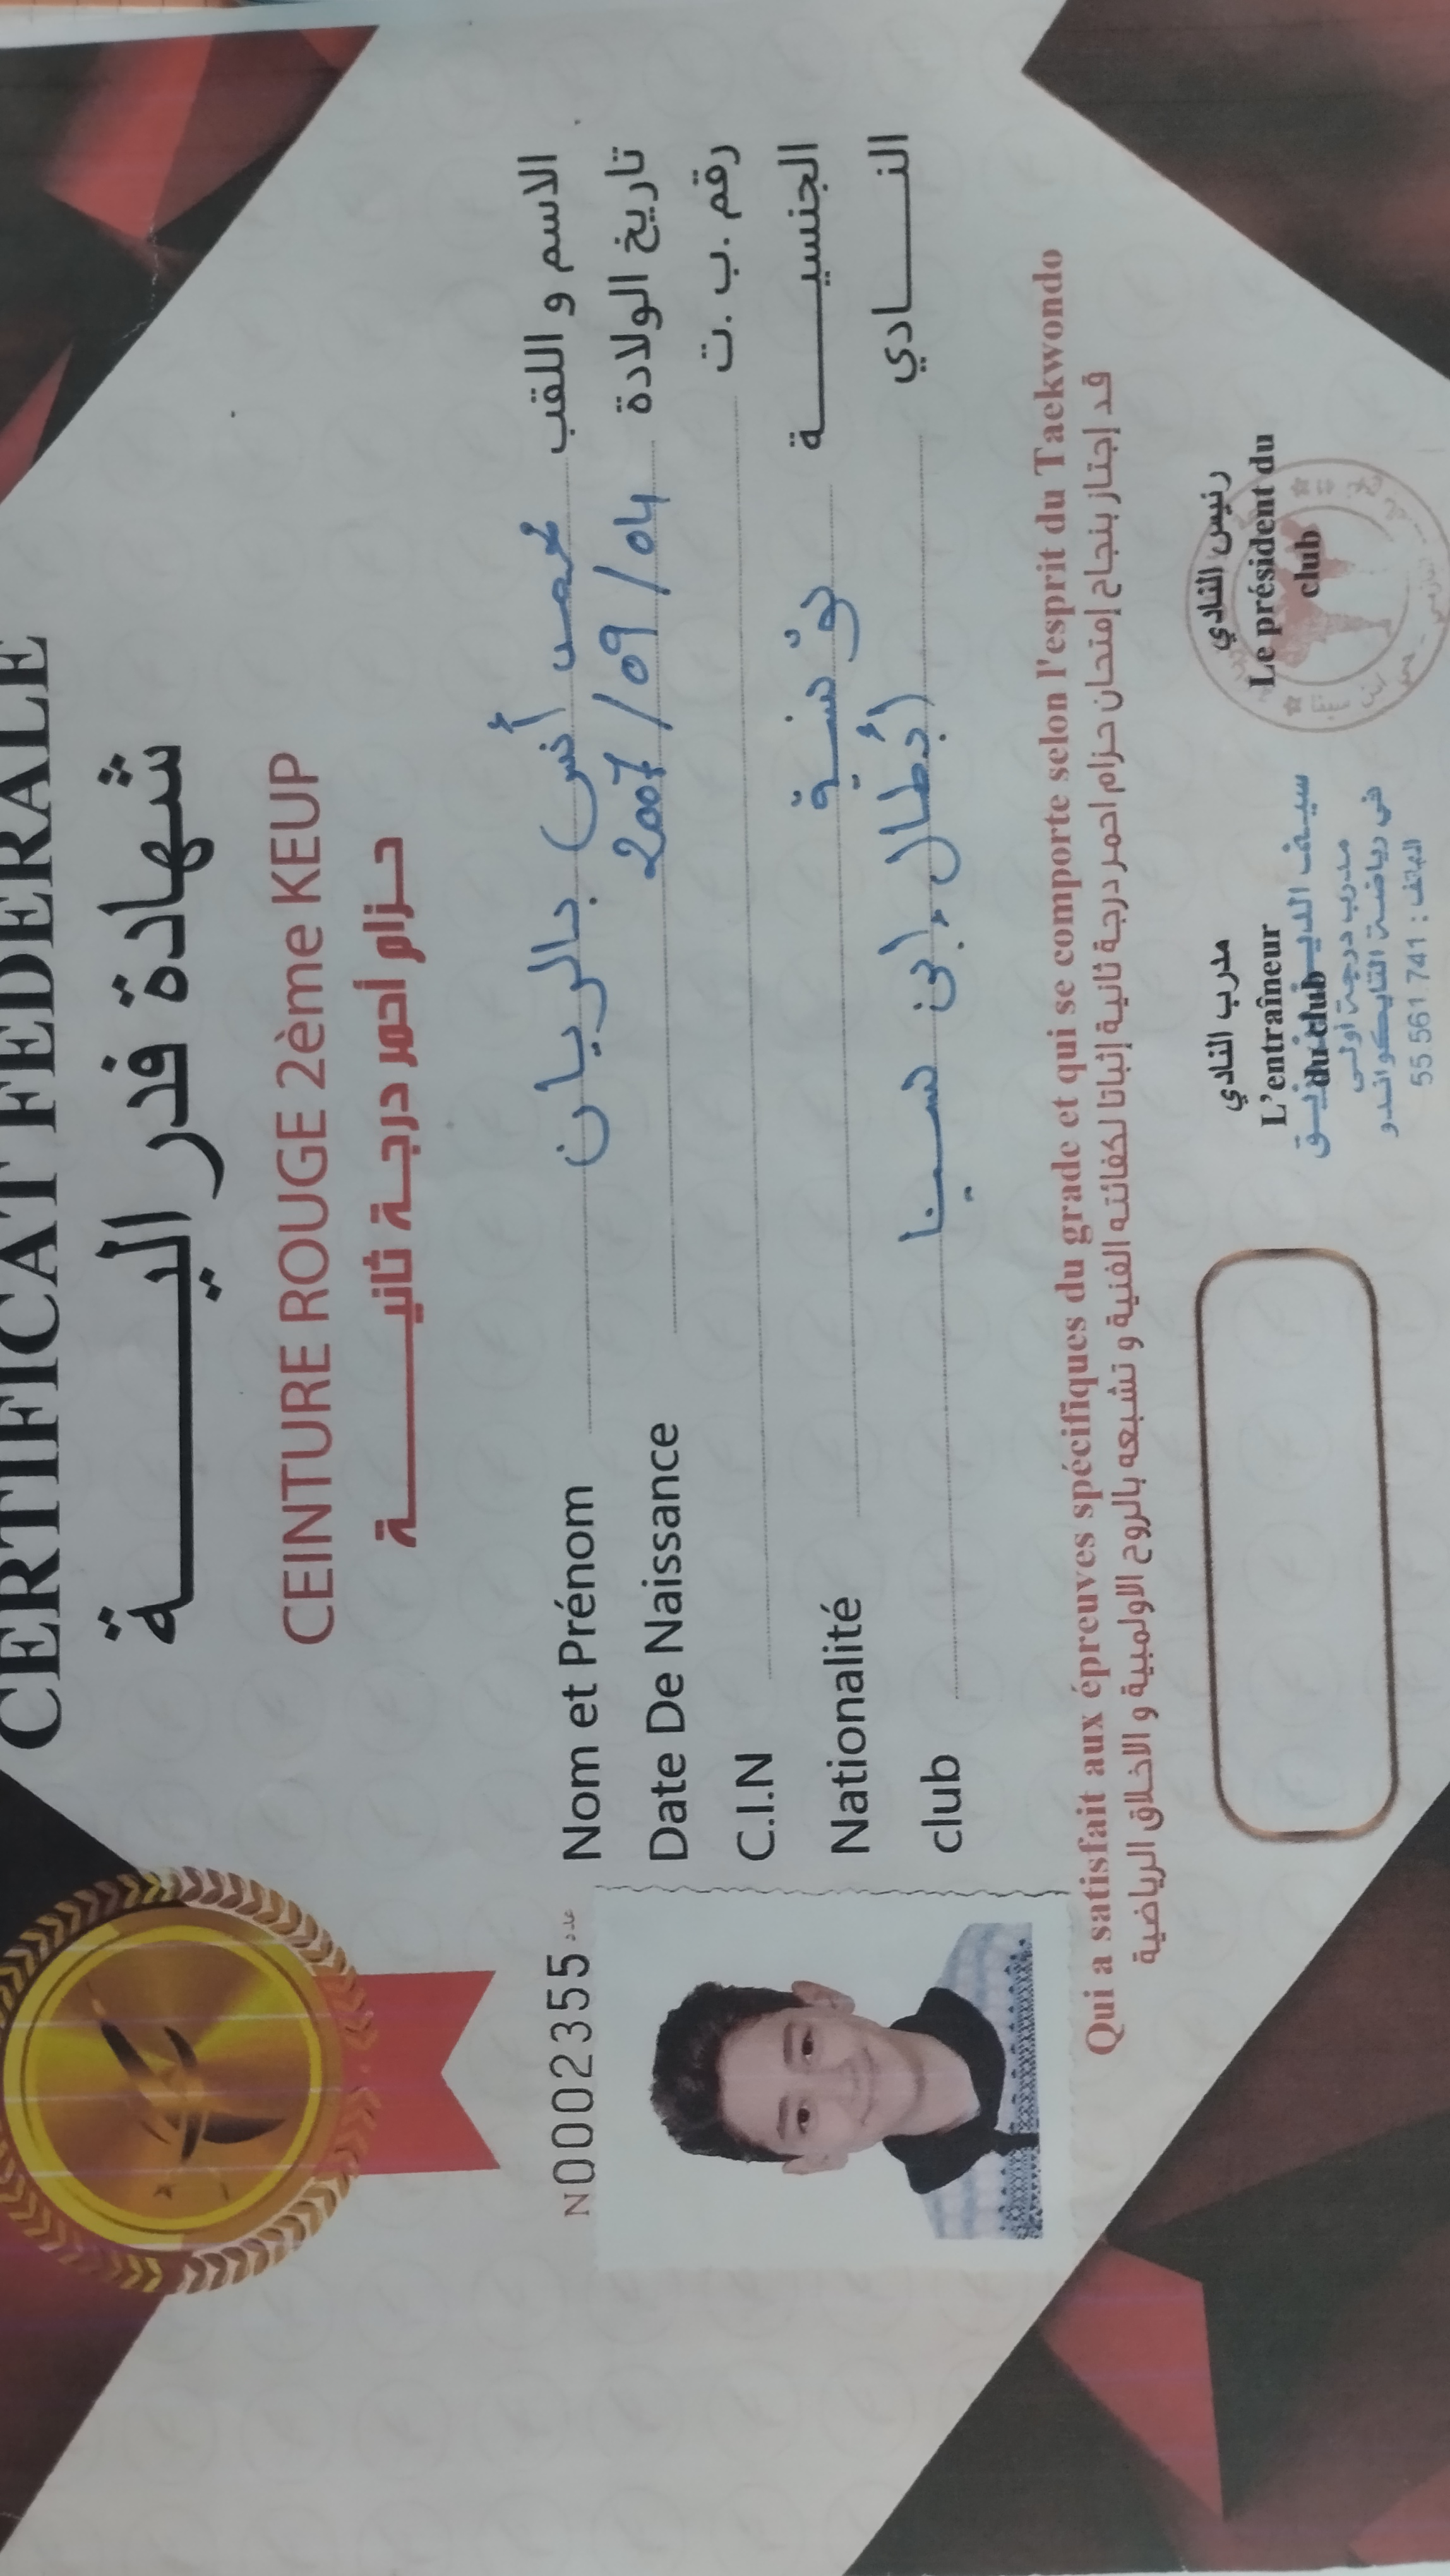 CERTIFICAT FEDERALE
شهادة فدراليــــــة
CEINTURE ROUGE 2ème KEUP
حزام أحمر درجة ثانيــــة
N0002355 عدد
Nom et Prénom محمد أنس بالريان الاسم و اللقب
Date De Naissance 2007/09/04 تاريخ الولادة
C.I.N رقم .ب .ت
Nationalité تونسية الجنسيـــــة
club أبطال ابن سينا النــــادي
Qui a satisfait aux épreuves spécifiques du grade et qui se comporte selon l'esprit du Taekwondo
قد إجتاز بنجاح إمتحان حزام احمر درجة ثانية إثباتا لكفائته الفنية و تشبعه بالروح الاولمبية و الاخلاق الرياضية
مدرب النادي
L'entraîneur
du club
سيف الدين
مدرب درجة أولى
في رياضة التايكواندو
الهاتف : 55 561 741
رئيس النادي
Le président du
club